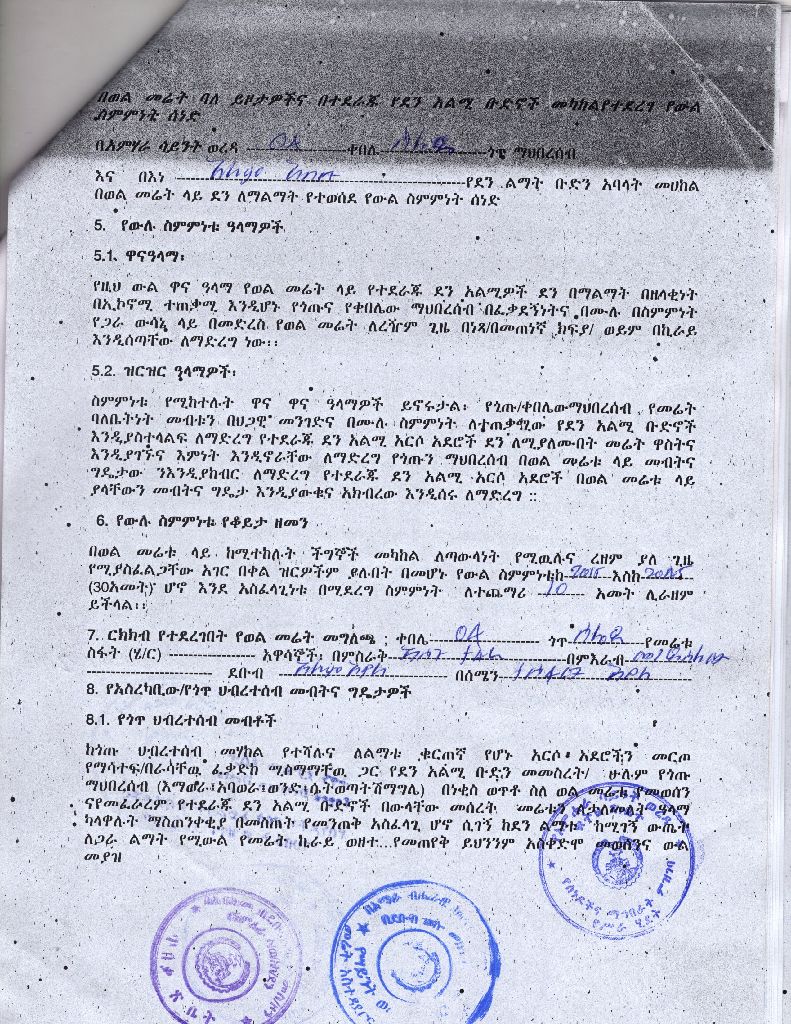 በወል መሬት ባለ ይዞታዎችና በተደራጁ የደን አልሚ ቡድኖች መካከልየተደረግ የውል
ስምምነት ሰነድ
በአምሃራ ሳይንት ወረዳ ቀበሌ ጎጥ ማህበረሰብ
እና በእነ የደን ልማት ቡድን አባላት መሀከል
በወል መሬት ላይ ደን ለማልማት የተወሰደ የውል ስምምነት ሰነድ
5. የውሉ ስምምነቱ ዓላማዎች
5.1. ዋናዓላማ፡
የዚህ ውል ዋና ዓላማ የወል መሬት ላይ የተደራጁ ደን አልሚዎች ደን በማልማት በዘላቂነት
በኢኮኖሚ ተጠቃሚ እንዲሆኑ የጎጡና የቀበሌው ማህበረሰብ በፈቃደኝነትና በሙሉ በስምምነት
የጋራ ውሳኔ ላይ በመድረስ የወል መሬት ለረዥም ጊዜ በነጻ/በመጠነኛ ክፍያ/ ወይም በኪራይ
እንዲሰጣቸው ለማድረግ ነው፡፡
5.2. ዝርዝር ዓላማዎች፡
ስምምነቱ የሚከተሉት ዋና ዋና ዓላማዎች ይኖሩታል፡ የጎጡ/ቀበሌውማህበረሰብ የመሬት
ባለቤትነት መብቱን በህጋዊ መንገድና በሙሉ ስምምነት ለተጠቃሚው የደን አልሚ ቡድኖች
እንዲያስተላልፍ ለማድረግ የተደራጁ ደን አልሚ አርሶ አደሮች ደን ለሚያለሙበት መሬት ዋስትና
እንዲያገኙና እምነት እንዲኖራቸው ለማድረግ የጎጡን ማህበረሰብ በወል መሬቱ ላይ መብትና
ግዴታው ንእንዲያከብር ለማድረግ የተደራጁ ደን አልሚ አርሶ አደሮች በወል መሬቱ ላይ
ያላቸውን መብትና ግዴታ እንዲያውቁና አክብረው እንዲሰሩ ለማድረግ ፡፡
6. የውሉ ስምምነቱ የቆይታ ዘመን
በወል መሬቱ ላይ ከሚተከሉት ችግኞች መካከል ለጣውላነት የሚዉሉና ረዘም ያለ ጊዜ
የሚያስፈልጋቸው አገር በቀል ዝርዎችም ያሉበት በመሆኑ የውል ስምምነቱከ 2015 እስከ 2045
(30አመት) ሆኖ እንደ አስፈላጊነቱ በሚደረግ ስምምነት ለተጨማሪ 10 አመት ሊራዘም
ይችላል፡፡
7. ርክክብ የተደረገበት የወል መሬት መግለጫ ; ቀበሌ ጎጥ የመሬቱ
ስፋት (ሄ/ር) አዋሳኞች፡ በምስራቅ በምእራብ
ደቡብ በሰሜን
8. የአስረካቢው/የጎጥ ህብረተሰብ መብትና ግዴታዎች
8.1. የጎጥ ህብረተሰብ መብቶች
ከጎጡ ህብረተሰብ መሃከል የተሻሉና ለልማቱ ቁርጠኛ የሆኑ አርሶ አደሮችን መርጦ
የማሳተፍ/በራሳቸዉ ፈቃድከ ሚስማማቸዉ ጋር የደን አልሚ ቡድን መመስረት/ ሁሉም የጎጡ
ማህበረሰብ በነቂስ ወጥቶ ስለ ወል መሬቱ የመወሰን
ናየመፈራረም የተደራጁ ደን አልሚ ቡድኖች በውላቸው መሰረት መሬቱን ለታለመለት ዓላማ
ካላዋሉት ማስጠንቀቂያ በመስጠት የመንጠቅ አስፈላጊ ሆኖ ሲገኝ ከደን ልማቱ ከሚገኝ ውጤት
ለጋራ ልማት የሚውል የመሬት ኪራይ ወዘተ...የመጠየቅ ይህንንም አስቀድሞ መወሰንና ውል
መያዝ